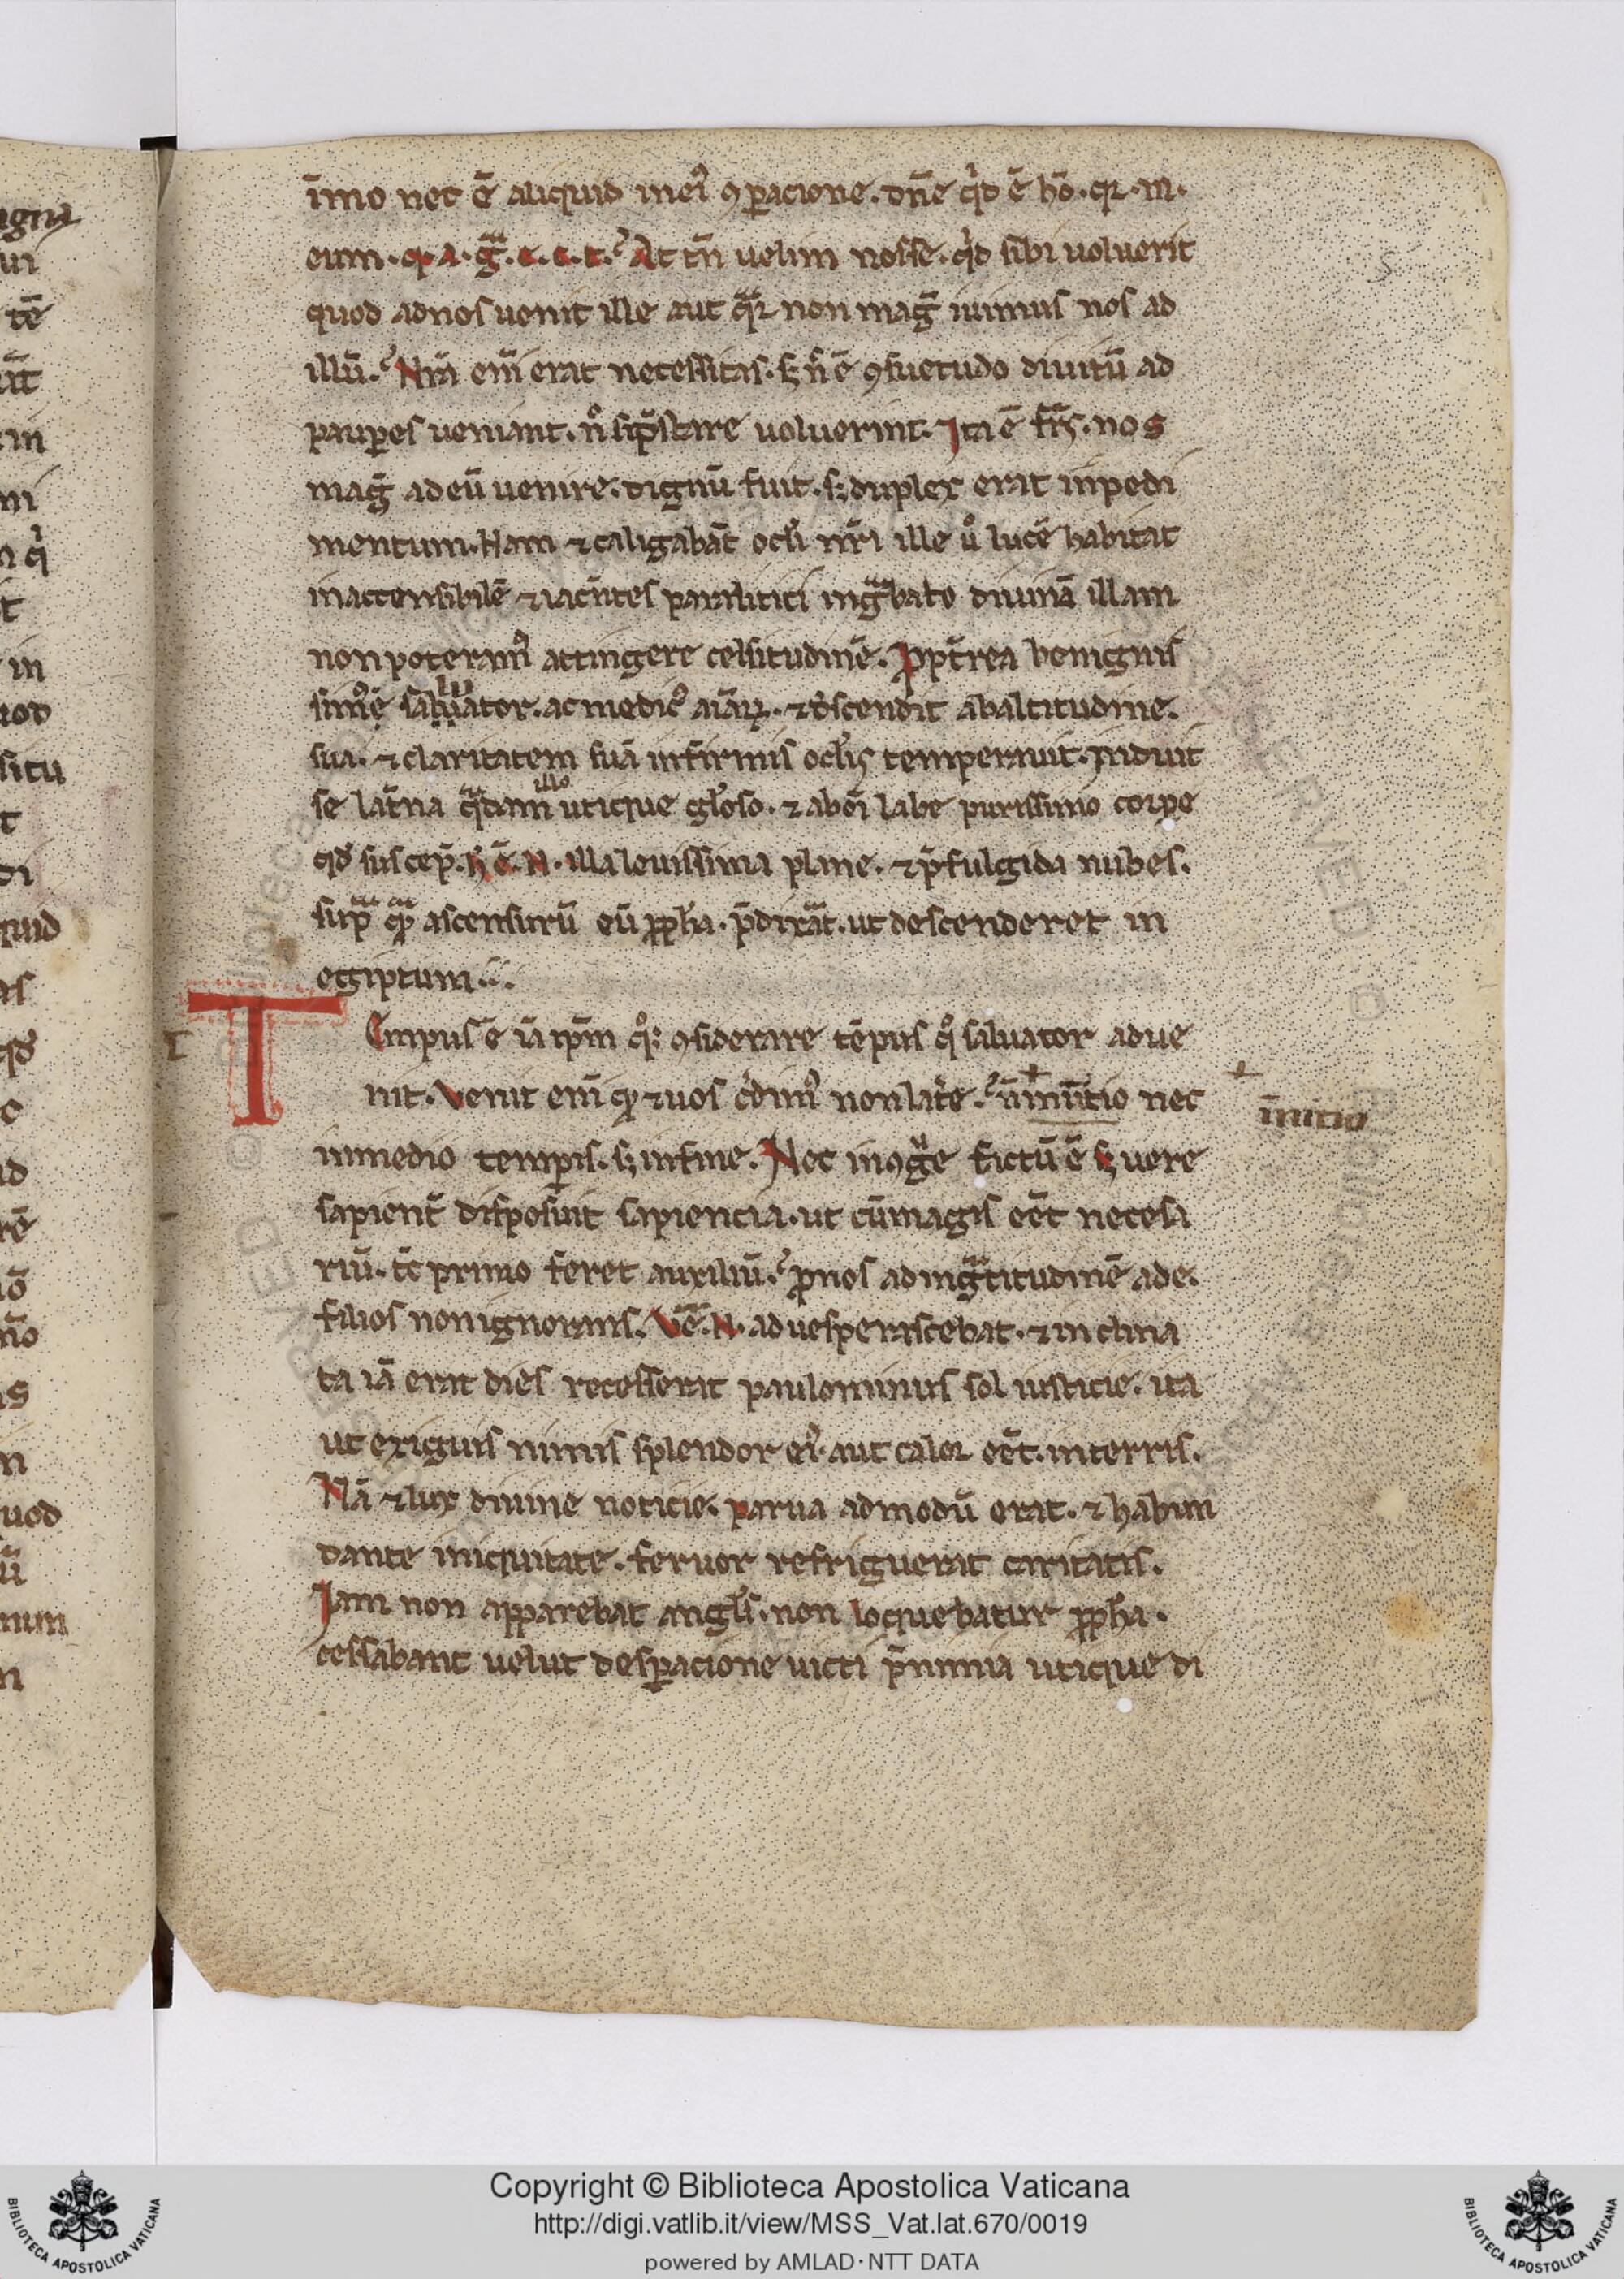 īmo nec ē aliquid inei᷒ ꝯꝑacione. dn̄e qͥd ē hō. qꝛ. m.
eum. qꝫ. a. gͣ. c. c. t.ˀ At tn̄ uelim nosse. qͥd sibi uoluerit
quod ad nos uenit ille aut qͣꝛ non maḡ iuimus nos ad
illū.ˀ Nr̄a em̄ erat necessitas. Sꝫ n̄ ē ꝯsuetudo diuitū ad
pauꝑes ueniant. nͦ si p̄stare uoluerint. Ita ē fr̄s. nos
maḡ ad eū uenire. dignū fuit. sꝫ duplex erat inpedi
mentum. Nam ⁊ caligabāt ocl̓i nr̄i ille uͦ lucē habitat
inaccensibilē ⁊ iacn̄tes paralitici in gͣbato diuinā illam
non poteram᷒ attingere celsitudinē. Propt̄rea benignis
sim᷒ ē saluator. ac medic᷒ aīaꝝ. ⁊ d̓scendit ab altitudine.
sua. ⁊ claritatem suā infirmis ocl̓is temperauit. Induit
se lat̄na qͣdam illo utique gl̓oso. ⁊ ab oī labe purissimo corꝑe
qd̓ suscep̄. h̓. ē. N. illa leuissima plane. ⁊ p̄fulgida nubes.
suꝑͣ qͣm ascensurū eū ꝓph̓a. p̄dixāt. ut descenderet in
egiptum...
T Empus ē iā ip̄m qͦꝫ ꝯsiderare tēpus qͦ saluator adue
nit. Venit em̄ qꝫ ⁊ uos c̓dim᷒ non lat̓e.ˀ n̄ inūtio nec
īnitio
in medio temꝑis. sꝫ in fine. Nec inꝯgͥe fictū ē sꝫ uere
sapient̄ disposuit sapiencia. ut cū magis eēt necesa
riū. tc̄ primo feret auxiliū.ˀ ꝓnos ad ingͣtitudinē ade.
filios non ignorans. Veᷓ. N. aduesperascebat. ⁊ inclina
ta iā erat dies recesserat paulominus sol iusticie. ita
ut exiguis nimis splendor ei᷒. aut calor eēt. in terris.
Nā ⁊ lux diuine noticie. parua admodū erat. ⁊ habun
dante iniquitate. feruor refriguerat caritatis.
Iam non apparebat angl̓s. non loquebatur ꝓph̓a.
cessabant uelut desꝑacione uicti p̄ nimia utique di
Copyright © Biblioteca Apostolica Vaticana
http://digi.vatlib.it/view/MSS_Vat.lat.670/0019
powered by AMLAD·NTT DATA